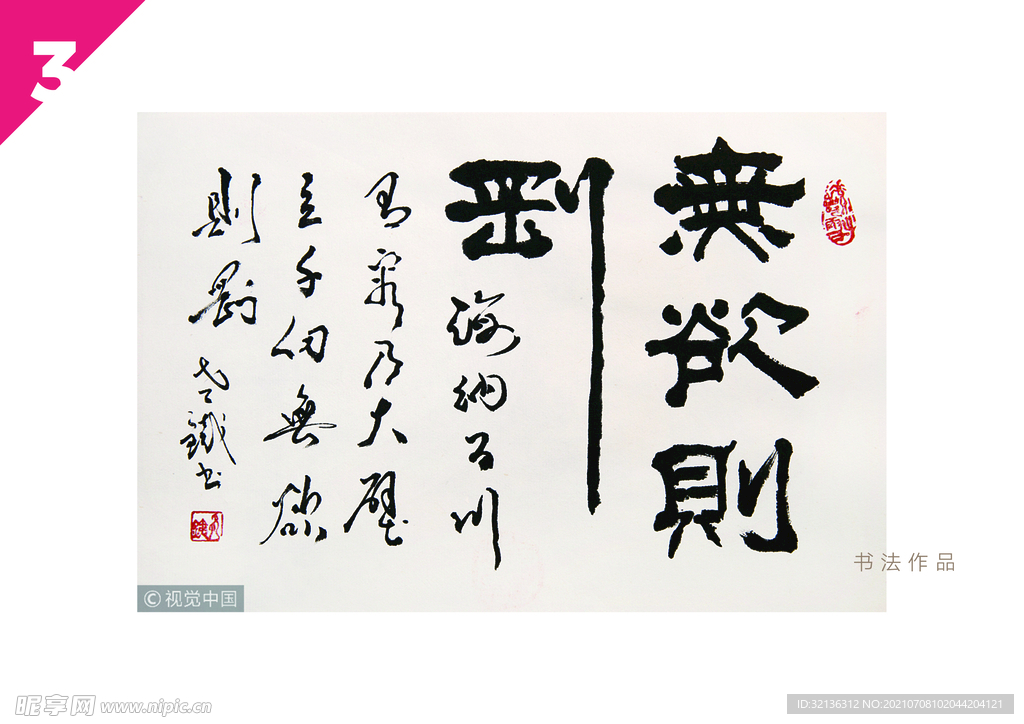 3
無欲則
剛
海納百川
有容乃大壁
立千仞無欲
則剛
鐵書
书法作品
© 视觉中国
昵享网 www.nipic.cn
ID:32136312 NO:20210708102044204121